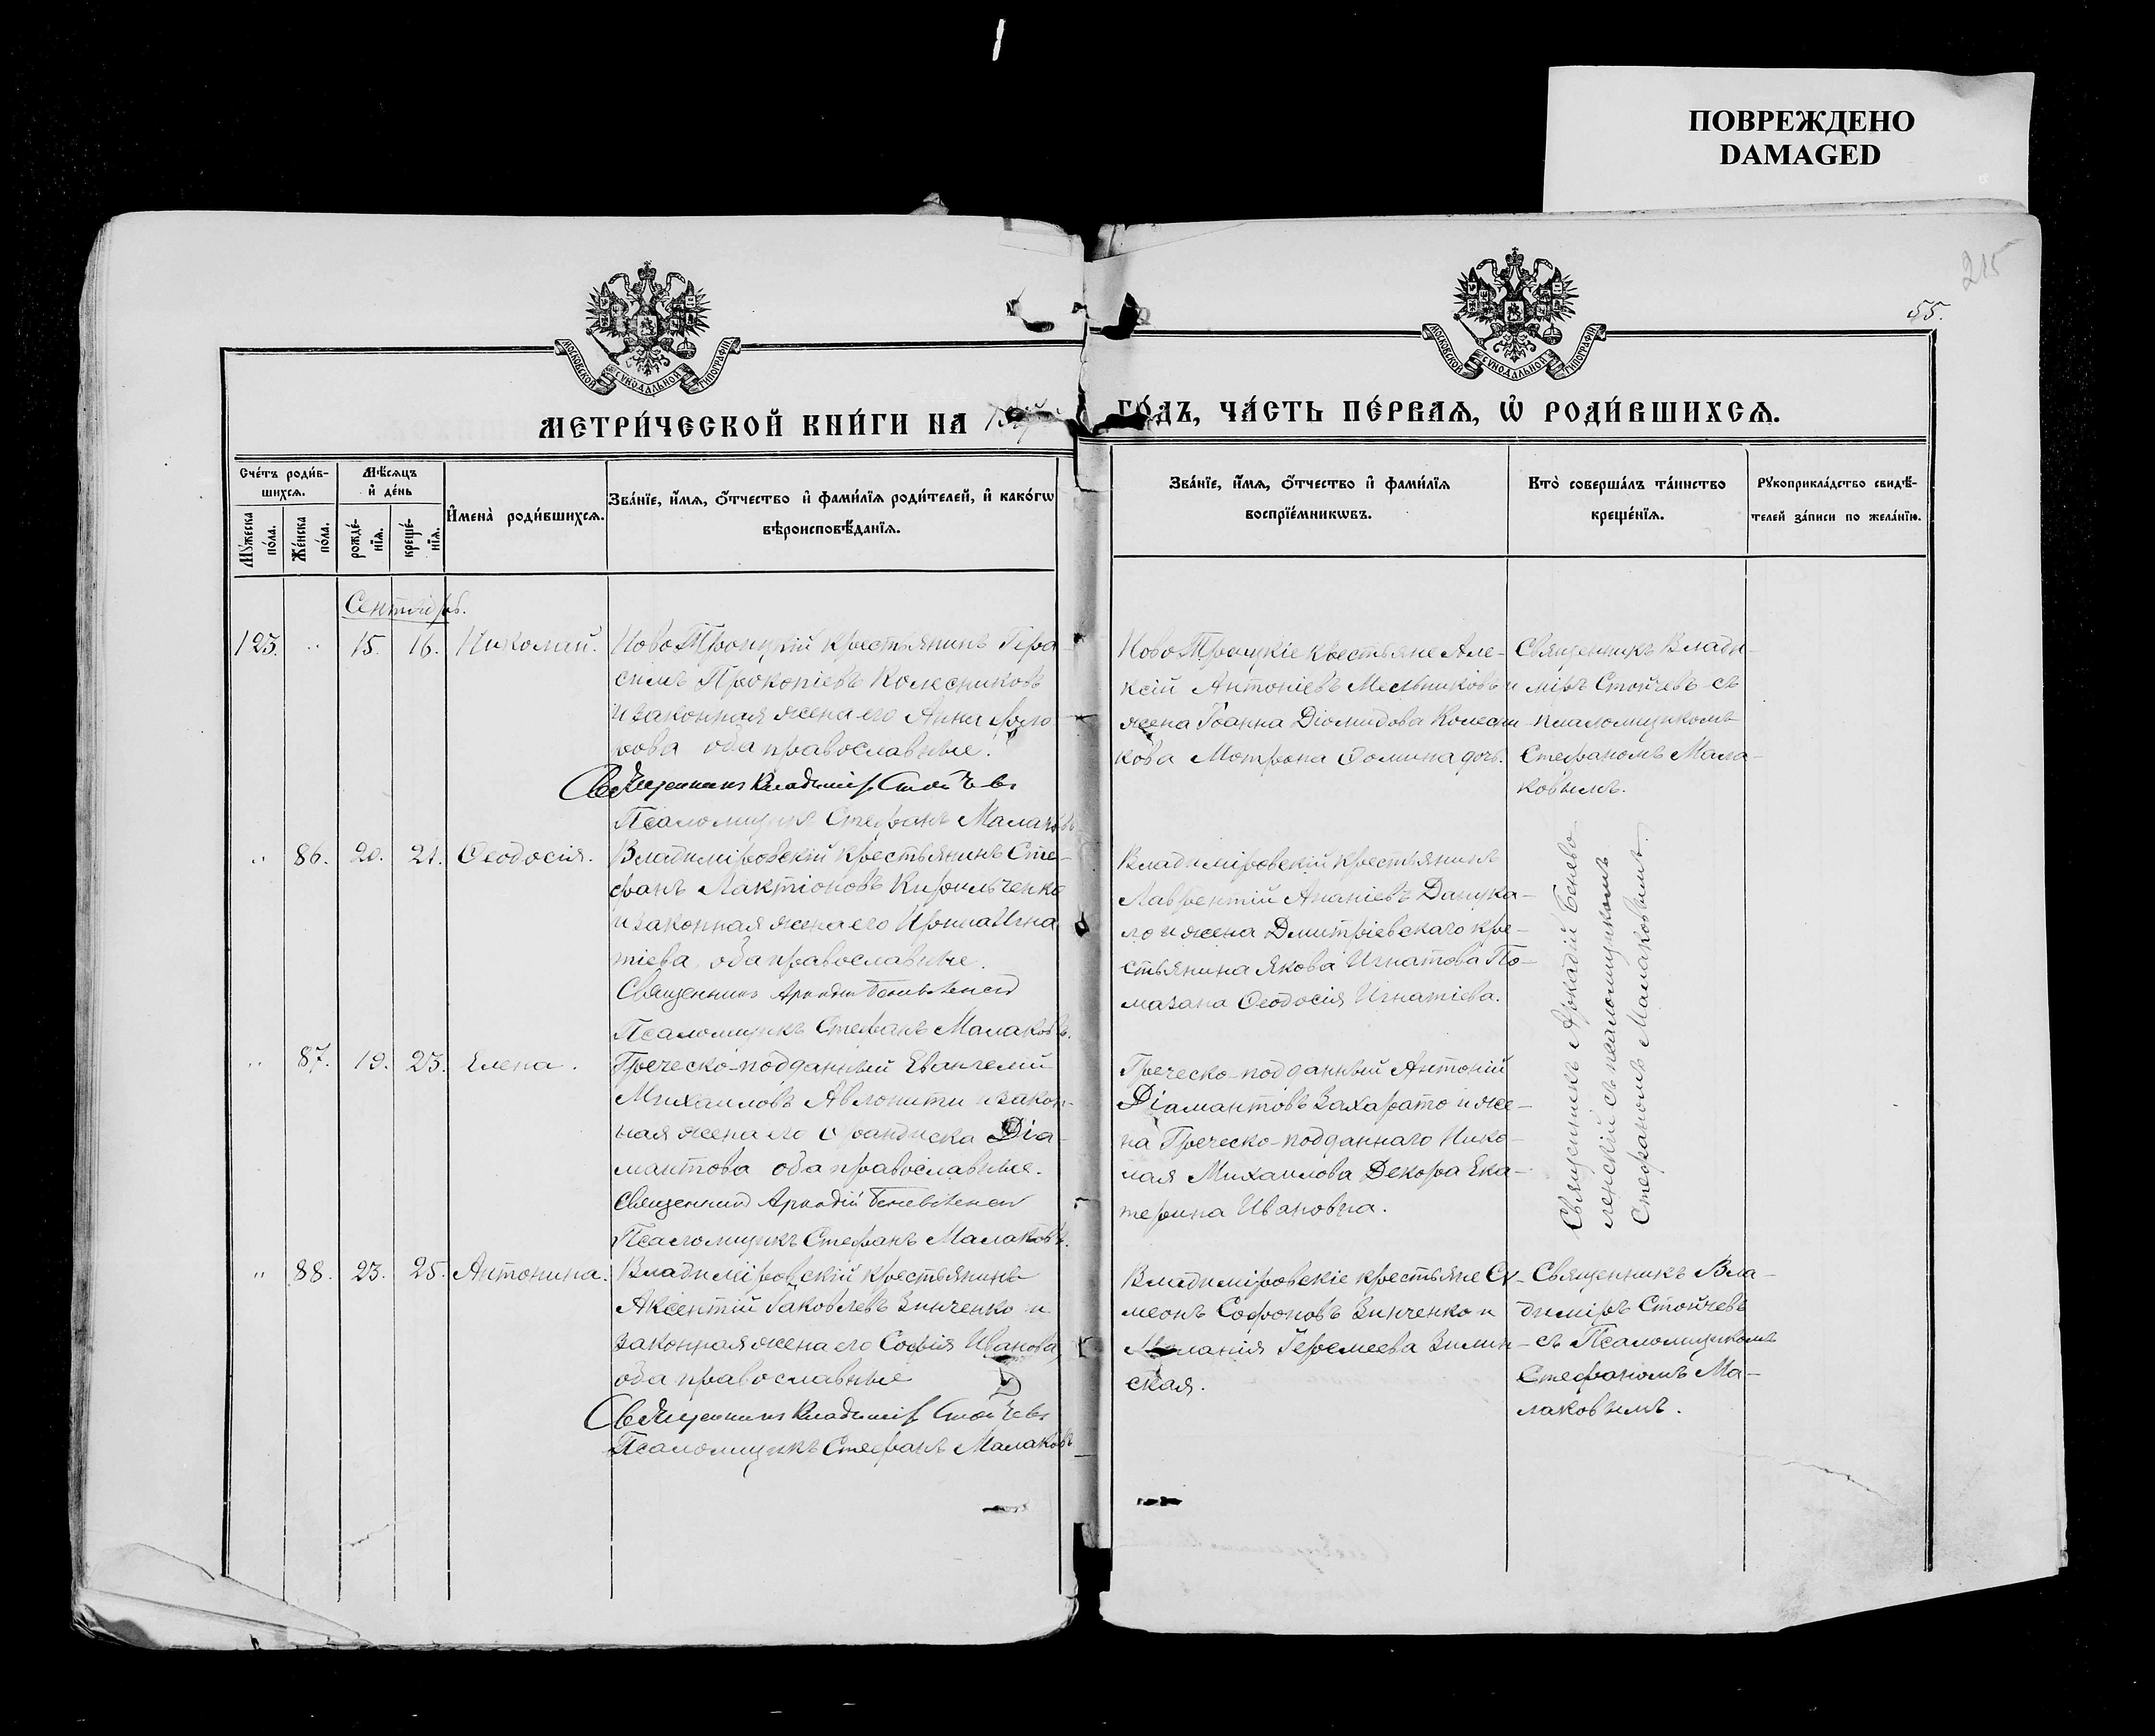 ПОВРЕЖДЕНО
DAMAGED
215
55.
МОСКОВСКОЙ СѴНОДАЛЬНОЙ ТИПОГРАФІИ
МОСКОВСКОЙ СѴНОДАЛЬНОЙ ТИПОГРАФІИ
МЕТРИ́ЧЕСКОЙ КНИ́ГИ НА
ГО́ДЪ, ЧА́СТЬ ПЕ́РВАѦ, Ѡ҆ РОДИ́ВШИХСѦ.
Сче́тъ роди́в-
шихсѧ.
Мѣ́сѧцъ
и҆ де́нь
Мꙋ́жеска
по́ла.
Же́нска
по́ла.
рожде́-
нїѧ.
креще́-
нїѧ.
И҆мена̀ роди́вшихсѧ.
Зва́нїе, и҆́мѧ, ѻ҆́тчество и҆ фами́лїѧ роди́телей, и҆ како́гѡ
вѣроисповѣ́данїѧ.
Зва́нїе, и҆́мѧ, ѻ҆́тчество и҆ фами́лїѧ
воспрїе́мникѡвъ.
Кто̀ соверша́лъ та́инство
креще́нїѧ.
Рꙋкоприкла́дство свидѣ́-
телей за́писи по жела́нїю.
Сентябрь.
123. „ 15. 16. Николай.
Ново Троицкій крестьянинъ Гера-
симъ Прокопіевъ Колесниковъ
и законная жена его Анна
рова оба православные.
Священникъ Владиміръ Стойчевъ
Псаломщикъ Стефанъ Малаковъ
Ново Троицкіе крестьяне Але-
ксій Антоніевъ Мельниковъ и
жена Іоанна Діомидова Колесни
кова Мотрона Ѳомина дочь.
Священникъ Влади-
міръ Стойчевъ съ
псаломщикомъ
Стефаномъ Мала-
ковымъ.
„ 86. 20. 21. Ѳеодосія.
Владиміровскій крестьянинъ Сте-
фанъ Лактіоновъ Кирильченко
и законная жена его Ирина Игна
тіева, оба православные.
Священникъ Аркадій Беневоленскій
Псаломщикъ Стефанъ Малаковъ.
Владиміровскій крестьянинъ
Лаврентій Ананіевъ
ло и жена Дмитріевскаго кре-
стьянина Якова Игнатова По-
мазана Ѳеодосія Игнатіева.
Священникъ Аркадій Бенево-
ленскій съ псаломщикомъ
Стефаномъ Малаковымъ.
„ 87. 19. 23. Елена.
Греческо-подданный Евангелій
Михаиловъ Авлонити и закон-
ная жена его Франциска Діа-
мантова оба православные.
Священникъ Аркадій Беневоленскій
Псаломщикъ Стефанъ Малаковъ.
Греческо-подданный Антоній
Діамантовъ Захарато и же-
на Греческо-подданнаго Нико-
лая Михаилова Декора Ека-
терина Ивановна.
„ 88. 23. 25. Антонина.
Владиміровскій крестьянинъ
Аксентій Іаковлевъ Зинченко и
законная жена его Софія Иванова,
оба православные
Священникъ Владиміръ Стойчевъ
Псаломщикъ Стефанъ Малаковъ
Владиміровскіе крестьяне Си-
меонъ Софроновъ Зинченко и
Меланія Іеремеева Зилин-
ская.
Священникъ Вла-
диміръ Стойчевъ
съ Псаломщикомъ
Стефаномъ Ма-
лаковымъ.